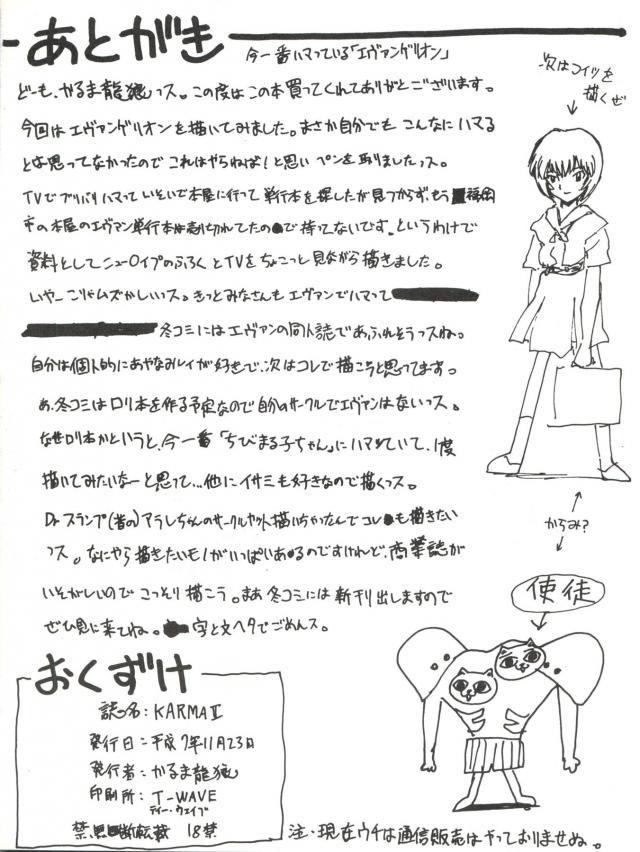 あとがき
今一番ハマっている「エヴァンゲリオン」
どーも、かるま龍狼っス。この度はこの本買ってくれてありがとございます。
今回はエヴァンゲリオンを描いてみました。まさか自分でもこんなにハマる
とは思ってなかったのでこれはやらねば!と思いペンを取りましたっス。
TVでブリバリハマっていそいで本屋に行って単行本を探したが見つからず、もう福岡
市の本屋のエヴァン単行本は売り切れてたので持てないです。というわけで
資料としてニューロイプのふろくとTVをちょこっと見ながら描きました。
いやーごりゃムズかしいっス。きっとみなさんもエヴァンでハマって
冬コミにはエヴァンの同人誌であふれそうっスね。
自分は個人的にあやなみレイが好きで、次はコレで描こうと思ってます。
あ、冬コミはロリ本を作る予定なので自分のサークルでエヴァンはないっス。
なぜロリ本かというと、今一番「ちびまる子ちゃん」にハマっていて、1度
描いてみたいなーと思って…他にイサミも好きなので描くっス。
Dr.スランプ(昔の)アラレちゃんのサークルカット描いちゃったんでコレも描きたい
っス。なにやら描きたいモノがいっぱいあるのですけれど、商業誌が
いそがしいのでこっそり描こう。まあ冬コミには新刊出しますので
ぜひ見に来てね。字と文ヘタでごめんス。
次はコイツを
描くぜ
からみ?
使徒
おくずけ
誌名:KARMAⅡ
発行日:平成7年11月23日
発行者:かるま龍狼
印刷所:T-WAVE
ティー・ウェイブ
禁無断転載 18禁
注・現在ウチは通信販売はやっておりませぬ。